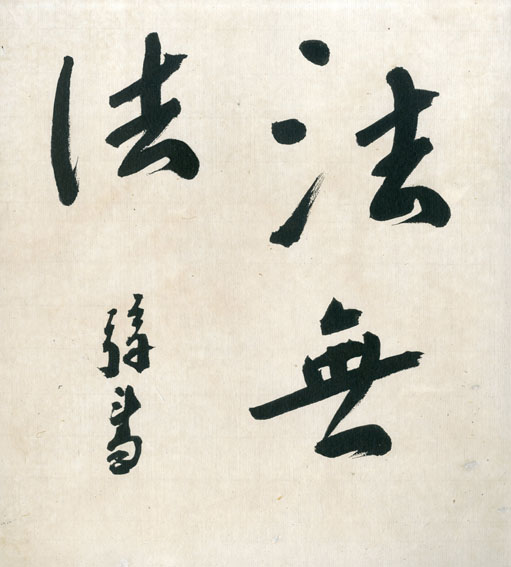 法無
法